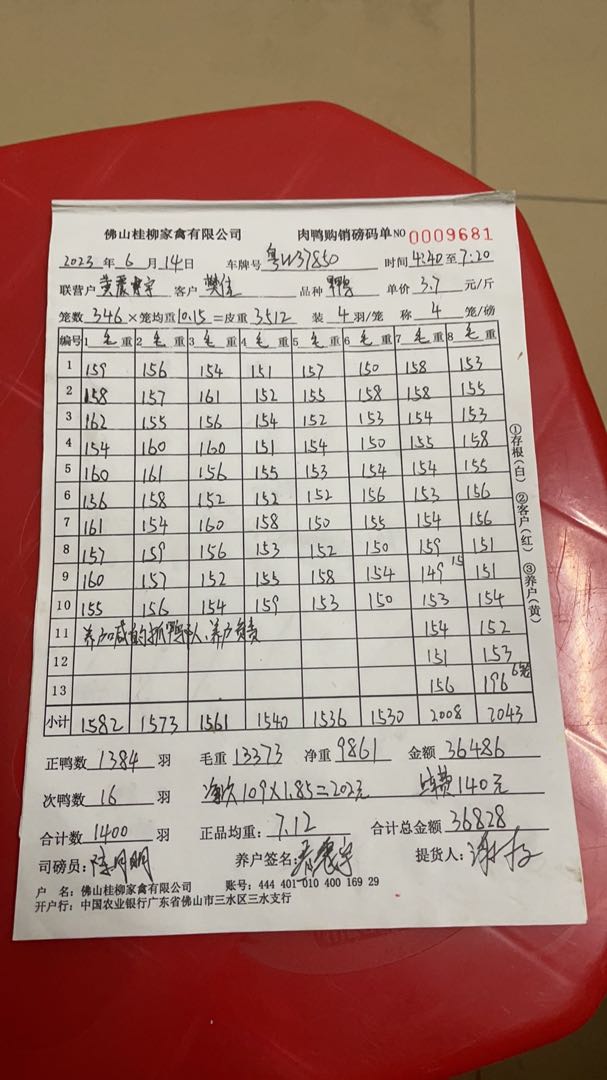 佛山桂柳家禽有限公司 肉鸭购销磅码单 NO 0009681
2023 年 6 月 14 日 车牌号 粤W37850 时间 4:40 至 7:20
联营户 客户 樊佳 品种 单价 3.7 元/斤
笼数 346 × 笼均重 10.15 = 皮重 3512 装 4 羽/笼 称 4 笼/磅
编号 1 毛 重 2 毛 重 3 毛 重 4 毛 重 5 毛 重 6 毛 重 7 毛 重 8 毛 重
1 159 156 154 151 157 150 158 153
2 158 157 161 152 155 158 158 155
3 162 155 156 154 152 153 154 153
4 154 160 160 151 154 150 155 158
5 160 161 156 155 153 154 154 155
6 156 158 152 152 152 156 153 156
7 161 154 160 158 150 155 154 156
8 157 159 156 153 152 150 159 151
9 160 157 152 155 158 154 149 15 151
10 155 156 154 159 153 150 153 154
11 养户喊的抓鸭工人、养户负责 154 152
12 151 153
13 156 196
小计 1582 1573 1561 1540 1536 1530 2008 2043
①存根(白) ②客户(红) ③养户(黄)
正鸭数 1384 羽 毛重 13373 净重 9861 金额 36486
次鸭数 16 羽 109×1.85=202元 140元
合计数 1400 羽 正品均重: 7.12 合计总金额 36828
司磅员: 养户签名: 提货人:
户 名: 佛山桂柳家禽有限公司 账号: 444 401 010 400 169 29
开户行: 中国农业银行广东省佛山市三水区三水支行